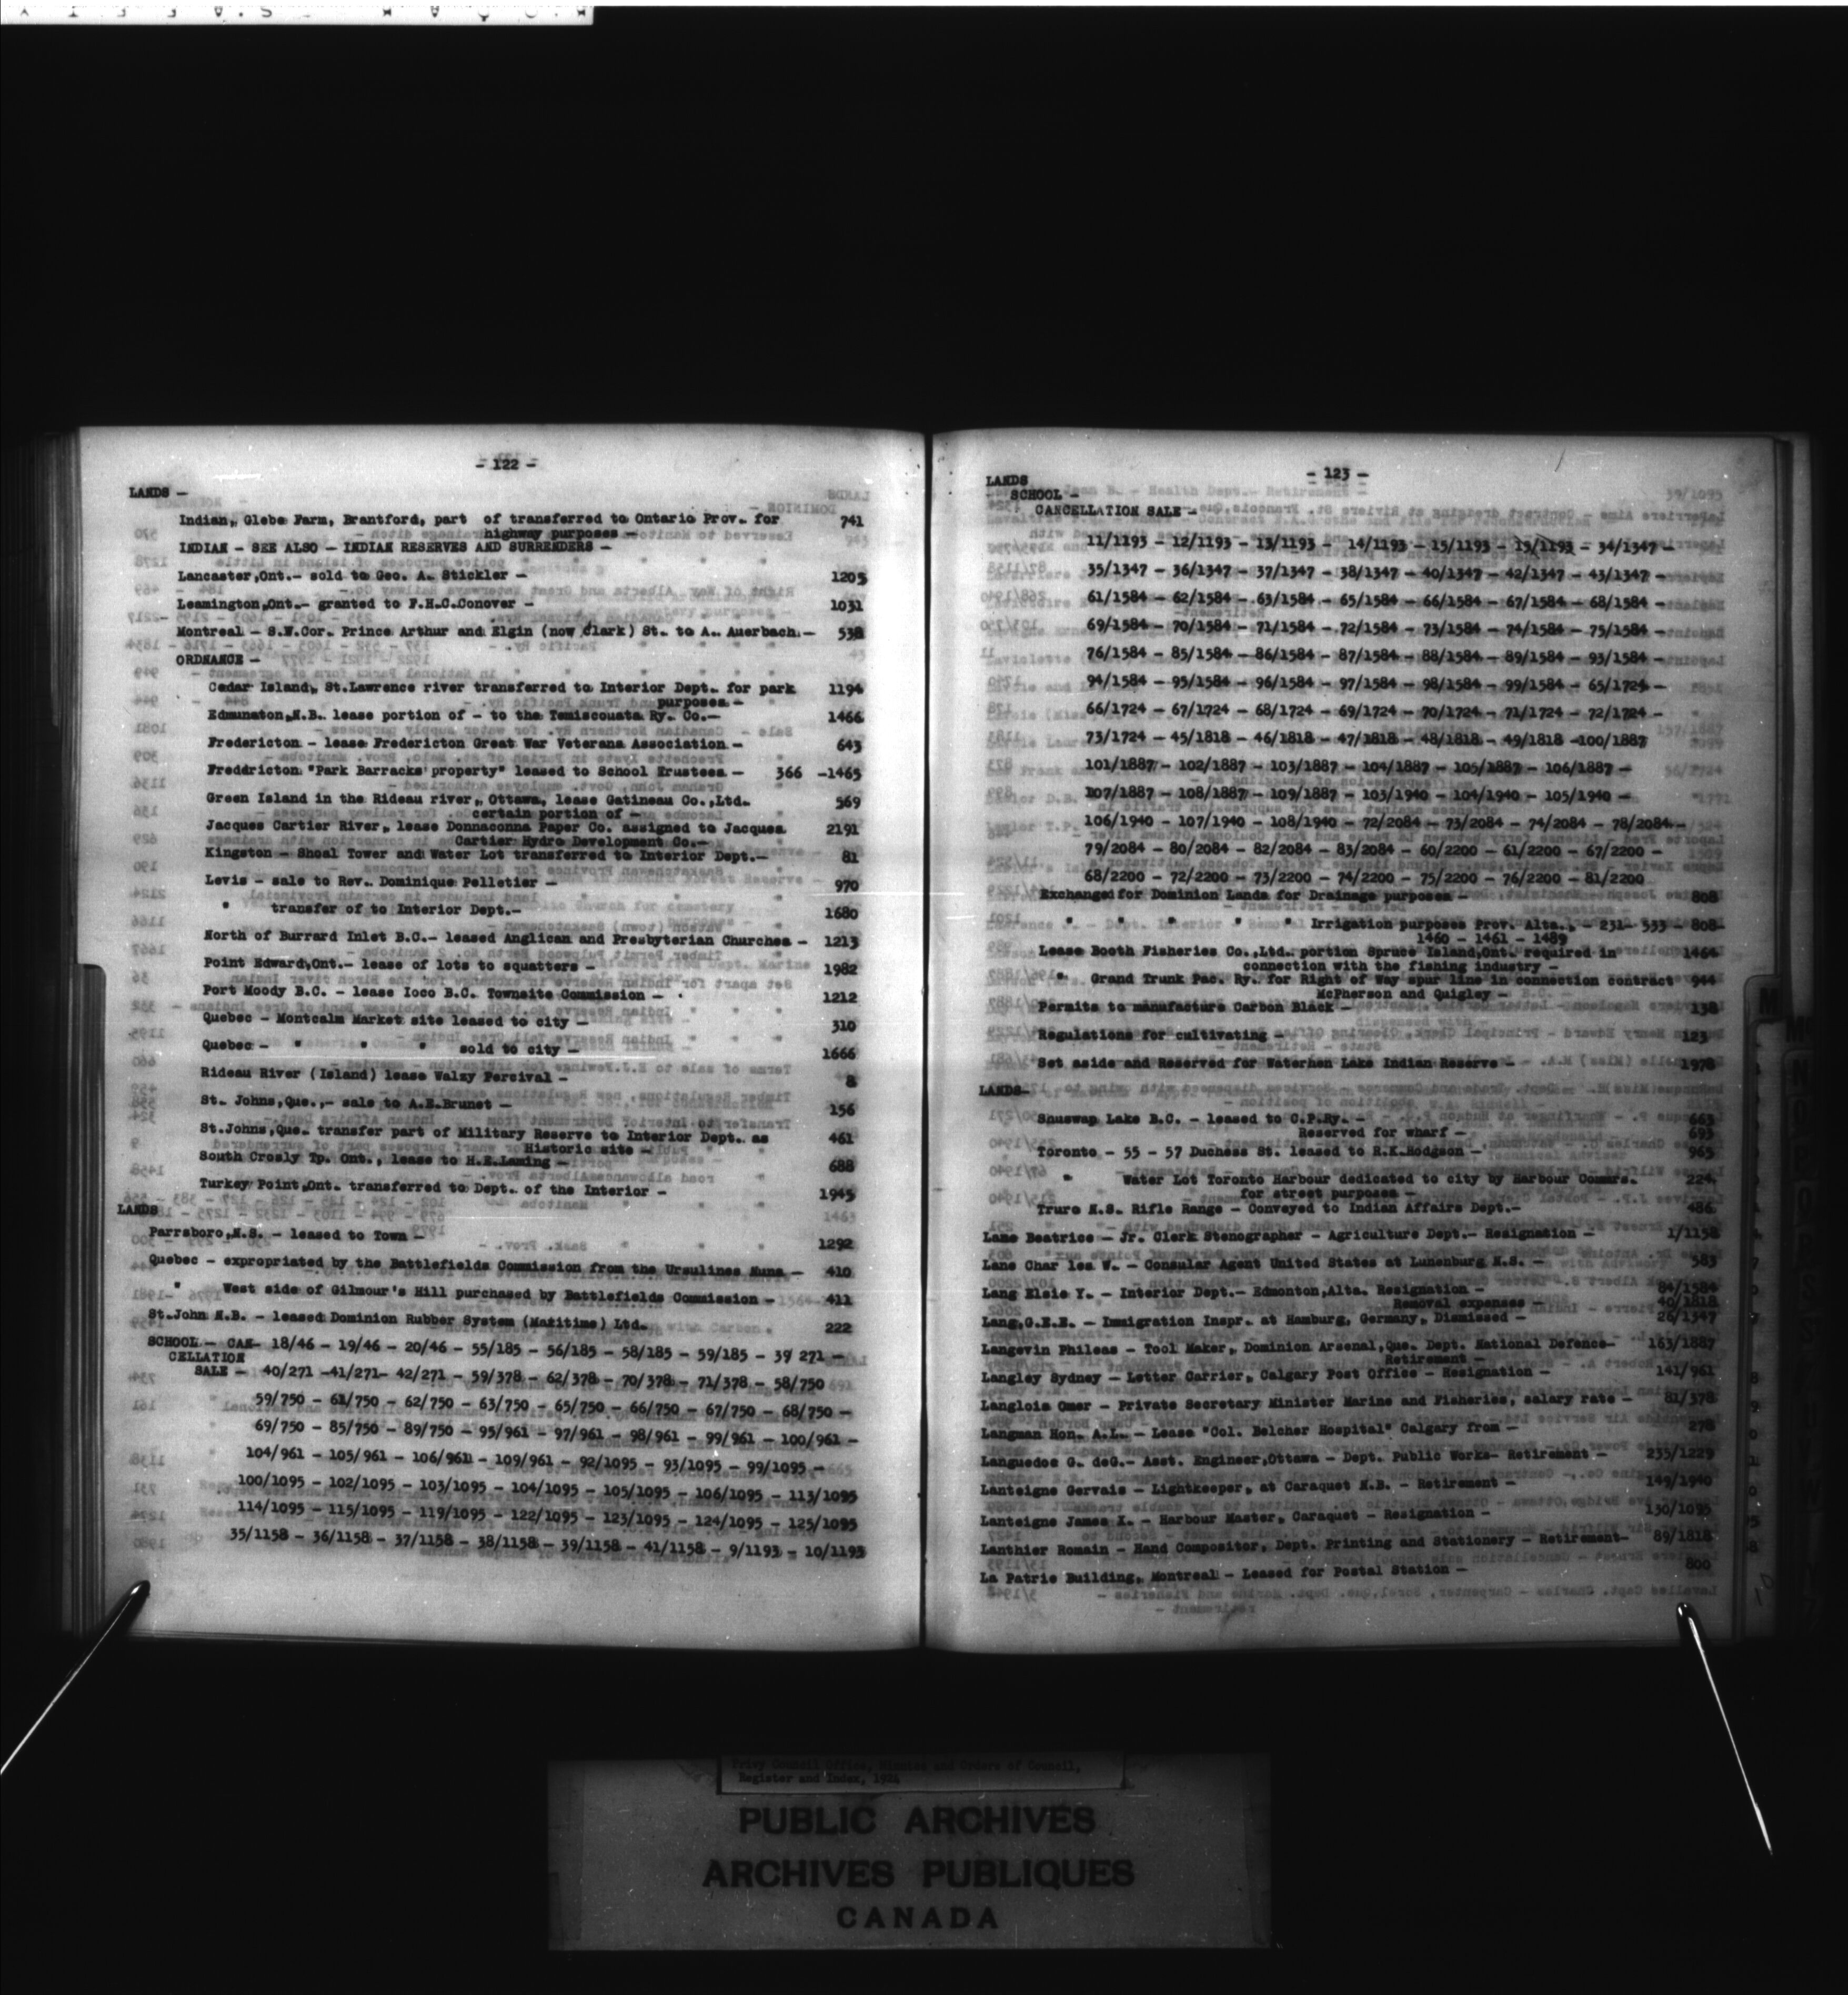 - 122 -
LANDS -
Indian, Glebe Farm, Brantford, part of transferred to Ontario Prov. for 741
highway purposes -
INDIAN - SEE ALSO - INDIAN RESERVES AND SURRENDERS -
Lancaster,Ont.- sold to Geo. A. Stickler - 1205
Leamington,Ont.- granted to F.H.C.Conover - 1031
Montreal - S.W.Cor. Prince Arthur and Elgin (now Clark) St. to A. Auerbach.- 538
ORDNANCE -
Cedar Island, St.Lawrence river transferred to Interior Dept. for park 1194
purposes -
Edmunston,N.B. lease portion of - to the Temiscouata Ry. Co.- 1466
Fredericton - lease Fredericton Great War Veterans Association - 643
Freddricton "Park Barracks property" leased to School Erustees - 366 -1465
Green Island in the Rideau river, Ottawa, lease Gatineau Co.,Ltd. 569
certain portion of -
Jacques Cartier River, lease Donnaconna Paper Co. assigned to Jacques 2191
Cartier Hydro Development Co.-
Kingston - Shoal Tower and Water Lot transferred to Interior Dept.- 81
Levis - sale to Rev. Dominique Pelletier - 970
" transfer of to Interior Dept.- 1680
North of Burrard Inlet B.C.- leased Anglican and Presbyterian Churches - 1213
Point Edward,Ont.- lease of lots to squatters - 1982
Port Moody B.C. - lease Ioco B.C. Townsite Commission - 1212
Quebec - Montcalm Market site leased to city - 310
Quebec - " " " sold to city - 1666
Rideau River (Island) lease Walzy Percival - 8
St. Johns,Que.,- sale to A.E.Brunet - 156
St.Johns,Que. transfer part of Military Reserve to Interior Dept. as 461
Historic site -
South Crosly Tp. Ont., lease to H.E.Laming - 688
Turkey Point,Ont. transferred to Dept. of the Interior - 1945
LANDS
Parrsboro,N.S. - leased to Town - 1292
Quebec - expropriated by the Battlefields Commission from the Ursulines Nuns - 410
" West side of Gilmour's Hill purchased by Battlefields Commission - 411
St.John N.B. - leased Dominion Rubber System (Matitime) Ltd. 222
SCHOOL - CAN- 18/46 - 19/46 - 20/46 - 55/185 - 56/185 - 58/185 - 59/185 - 39 271 -
CELLATION
SALE - 40/271 -41/271- 42/271 - 59/378 - 62/378 - 70/378 - 71/378 - 58/750
59/750 - 61/750 - 62/750 - 63/750 - 65/750 - 66/750 - 67/750 - 68/750 -
69/750 - 85/750 - 89/750 - 95/961 - 97/961 - 98/961 - 99/961 - 100/961 -
104/961 - 105/961 - 106/961 - 109/961 - 92/1095 - 93/1095 - 99/1095 -
100/1095 - 102/1095 - 103/1095 - 104/1095 - 105/1095 - 106/1095 - 113/1095
114/1095 - 115/1095 - 119/1095 - 122/1095 - 123/1095 - 124/1095 - 125/1095
35/1158 - 36/1158 - 37/1158 - 38/1158 - 39/1158 - 41/1158 - 9/1193 - 10/1193
- 123 -
LANDS
SCHOOL -
CANCELLATION SALE -
11/1193 - 12/1193 - 13/1193 - 14/1193 - 15/1193 - 15/1193 - 34/1347 -
35/1347 - 36/1347 - 37/1347 - 38/1347 - 40/1347 - 42/1347 - 43/1347 -
61/1584 - 62/1584 - 63/1584 - 65/1584 - 66/1584 - 67/1584 - 68/1584 -
69/1584 - 70/1584 - 71/1584 - 72/1584 - 73/1584 - 74/1584 - 75/1584 -
76/1584 - 85/1584 - 86/1584 - 87/1584 - 88/1584 - 89/1584 - 93/1584 -
94/1584 - 95/1584 - 96/1584 - 97/1584 - 98/1584 - 99/1584 - 65/1724 -
66/1724 - 67/1724 - 68/1724 - 69/1724 - 70/1724 - 71/1724 - 72/1724 -
73/1724 - 45/1818 - 46/1818 - 47/1818 - 48/1818 - 49/1818 -100/1887
101/1887 - 102/1887 - 103/1887 - 104/1887 - 105/1887 - 106/1887 -
107/1887 - 108/1887 - 109/1887 - 103/1940 - 104/1940 - 105/1940 -
106/1940 - 107/1940 - 108/1940 - 72/2084 - 73/2084 - 74/2084 - 78/2084 -
79/2084 - 80/2084 - 82/2084 - 83/2084 - 60/2200 - 61/2200 - 67/2200 -
68/2200 - 72/2200 - 73/2200 - 74/2200 - 75/2200 - 76/2200 - 81/2200
Exchanged for Dominion Lands for Drainage purposes - 808
" " " " " Irrigation purposes Prov. Alta., - 231- 533 - 808-
1460 - 1461 - 1489
Lease Booth Fisheries Co.,Ltd. portion Spruce Island,Ont. required in 1464
connection with the fishing industry -
" Grand Trunk Pac. Ry. for Right of Way spur line in connection contract 944
McPherson and Quigley -
Permits to manufacture Carbon Black - 138
Regulations for cultivating - 123
Set aside and Reserved for Waterhen Lake Indian Reserve - 1978
LANDS-
Shuswap Lake B.C. - leased to C.P.Ry. - 663
Reserved for wharf - 693
Toronto - 55 - 57 Duchess St. leased to R.K.Hodgson - 965
" Water Lot Toronto Harbour dedicated to city by Harbour Commrs. 224
for street purposes -
Truro N.S. Rifle Range - Conveyed to Indian Affairs Dept.- 486
Lane Beatrice - Jr. Clerk Stenographer - Agriculture Dept.- Resignation - 1/1158
Lane Char les W. - Consular Agent United States at Lunenburg N.S. - 583
Lang Elsie Y. - Interior Dept.- Edmonton,Alta. Resignation - 84/1584
Removal expenses - 40/1818
Lang,G.E.E. - Immigration Inspr. at Hamburg, Germany, Dismissed - 26/1347
Langevin Phileas - Tool Maker, Dominion Arsenal,Que. Dept. National Defence- 163/1887
Retirement -
Langley Sydney - Letter Carrier, Calgary Post Office - Resignation - 141/961
Langlois Omer - Private Secretary Minister Marine and Fisheries, salary rate - 81/378
Langman Hon. A.L. - Lease "Col. Belcher Hospital" Calgary from - 278
Languedoc G. deG.- Asst. Engineer,Ottawa - Dept. Public Works- Retirement - 235/1229
Lanteigne Gervais - Lightkeeper, at Caraquet N.B. - Retirement - 149/1940
Lanteigne James X. - Harbour Master, Caraquet - Resignation - 130/1095
Lanthier Romain - Hand Compositor, Dept. Printing and Stationery - Retirement- 89/1818
La Patrie Building, Montreal - Leased for Postal Station - 800
Privy Council Office, Minutes and Orders of Council,
Register and Index, 1924
PUBLIC ARCHIVES
ARCHIVES PUBLIQUES
CANADA